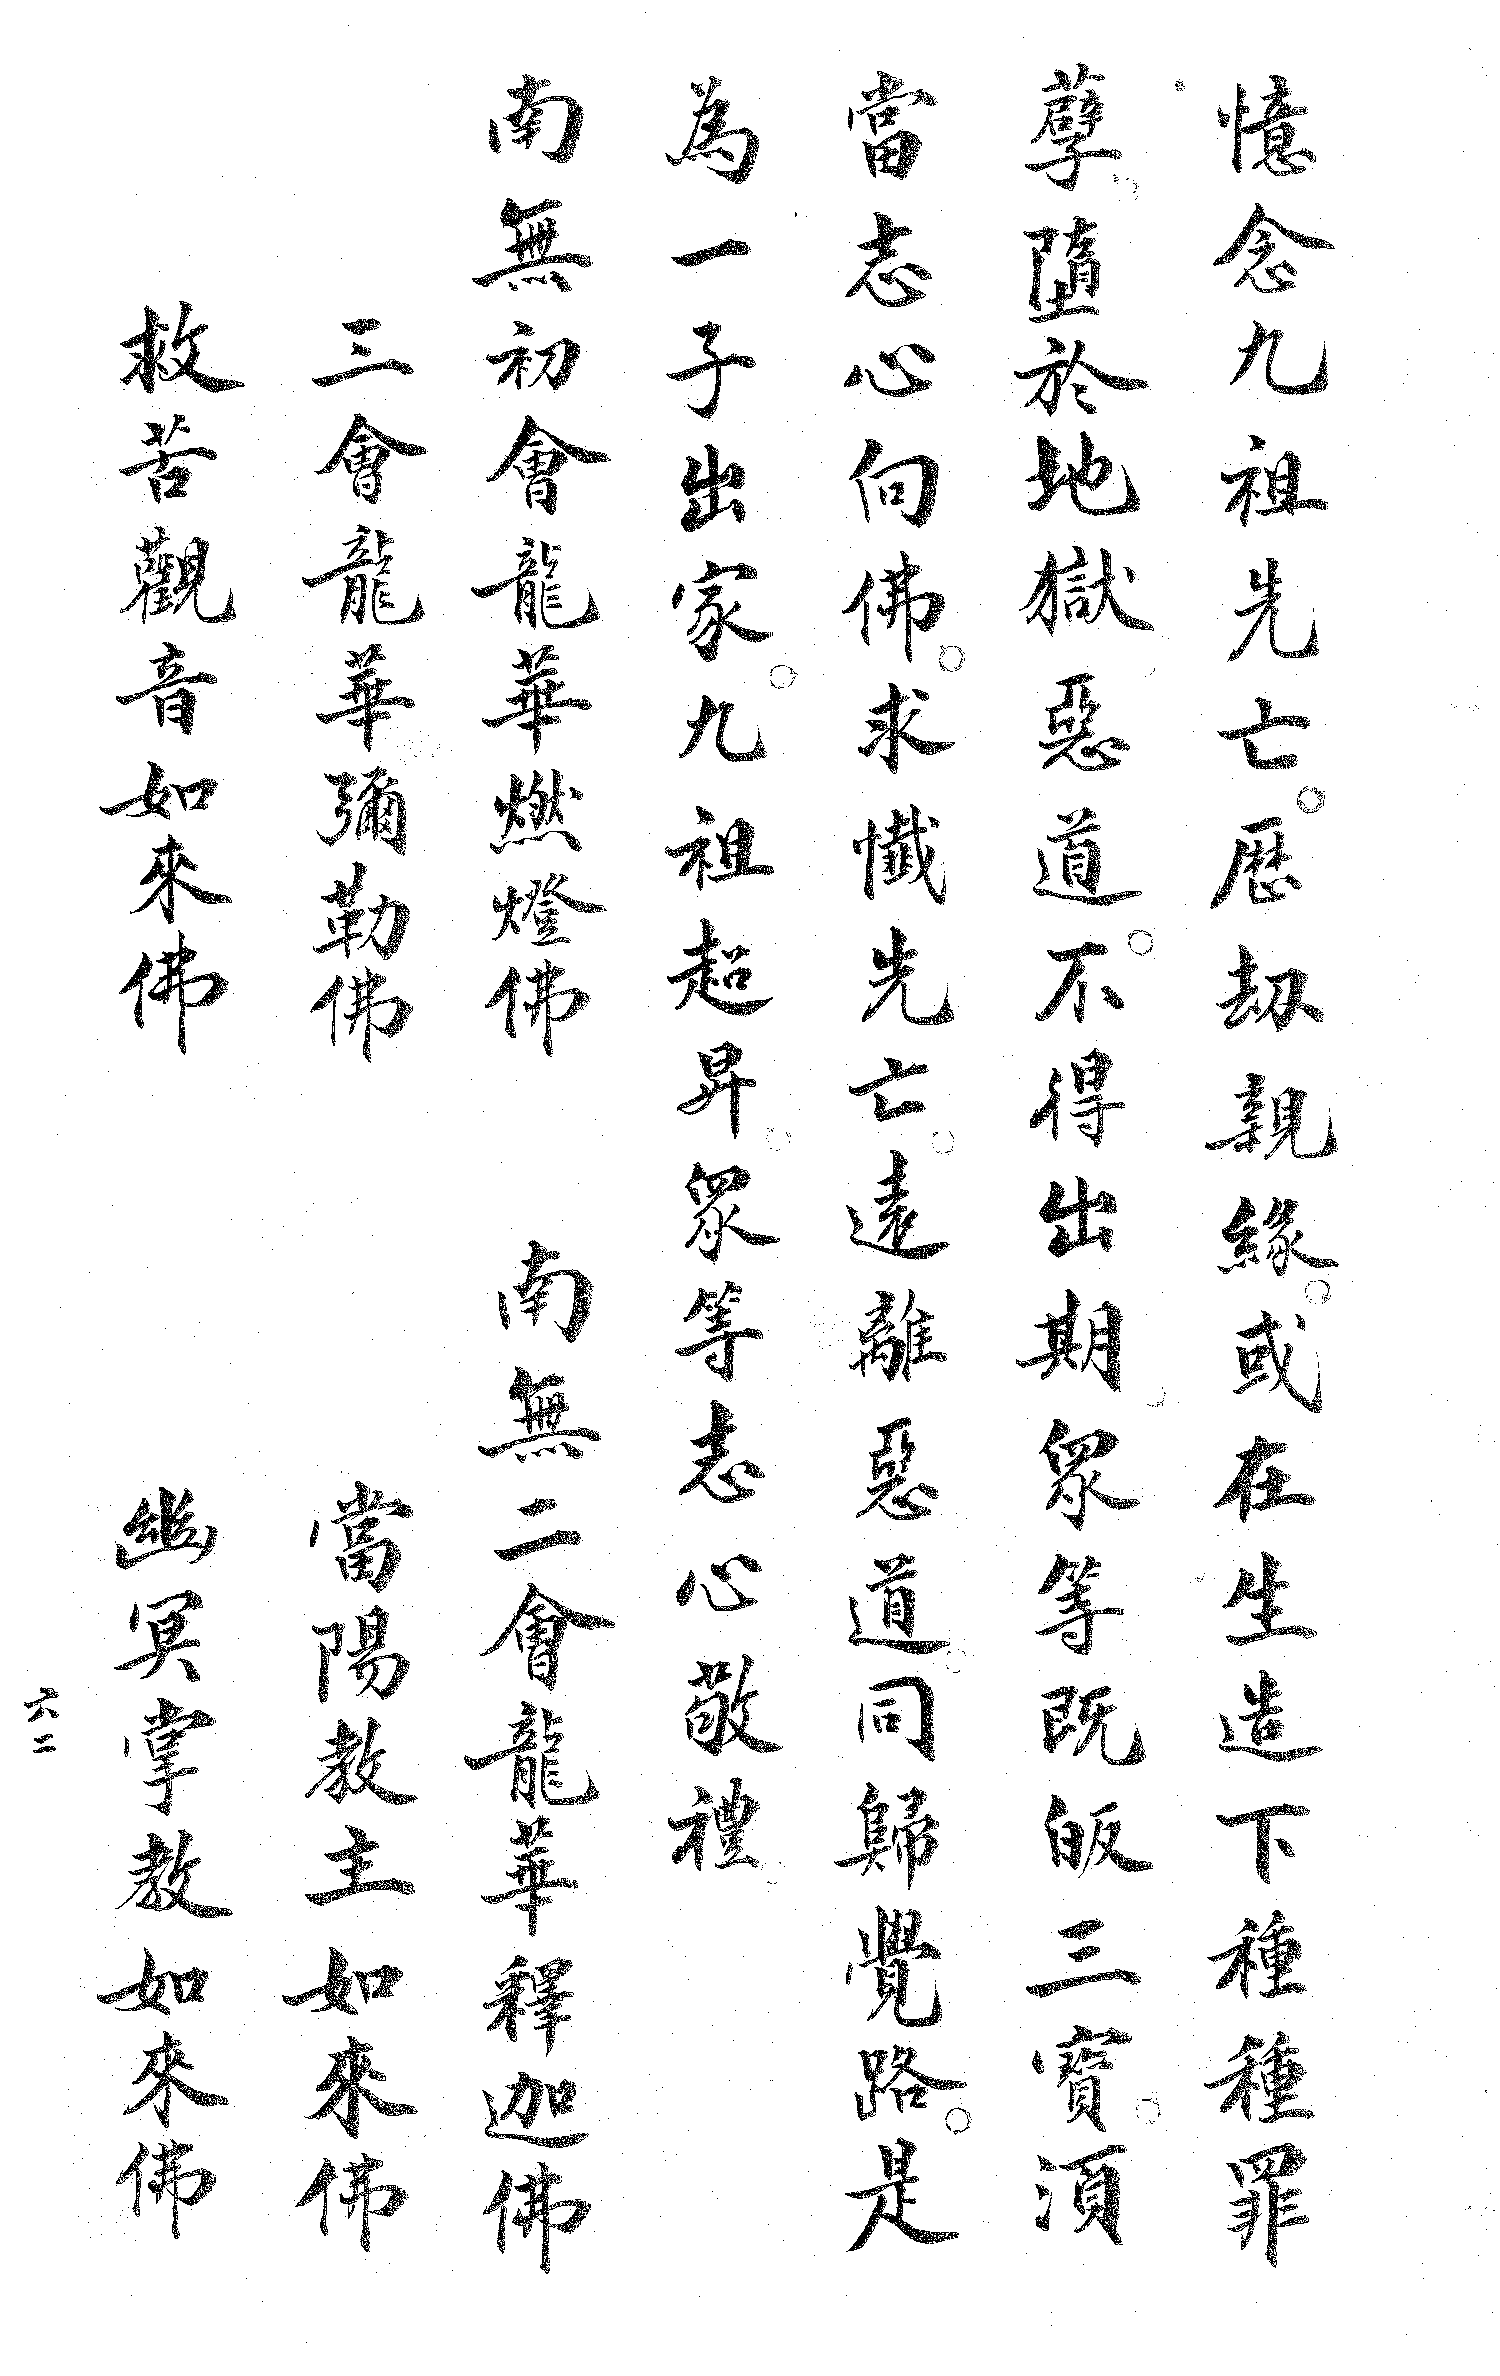 憶念九祖先亡。歷劫親緣。或在生造下種種罪
孽。墮於地獄惡道。不得出期。眾等既皈三寶。須
當志心向佛。求懺先亡。遠離惡道。同歸覺路。是
為一子出家。九祖超昇。眾等志心敬禮。
南無初會龍華燃燈佛　南無二會龍華釋迦佛
三會龍華彌勒佛　當陽教主如來佛
救苦觀音如來佛　幽冥掌教如來佛
六二